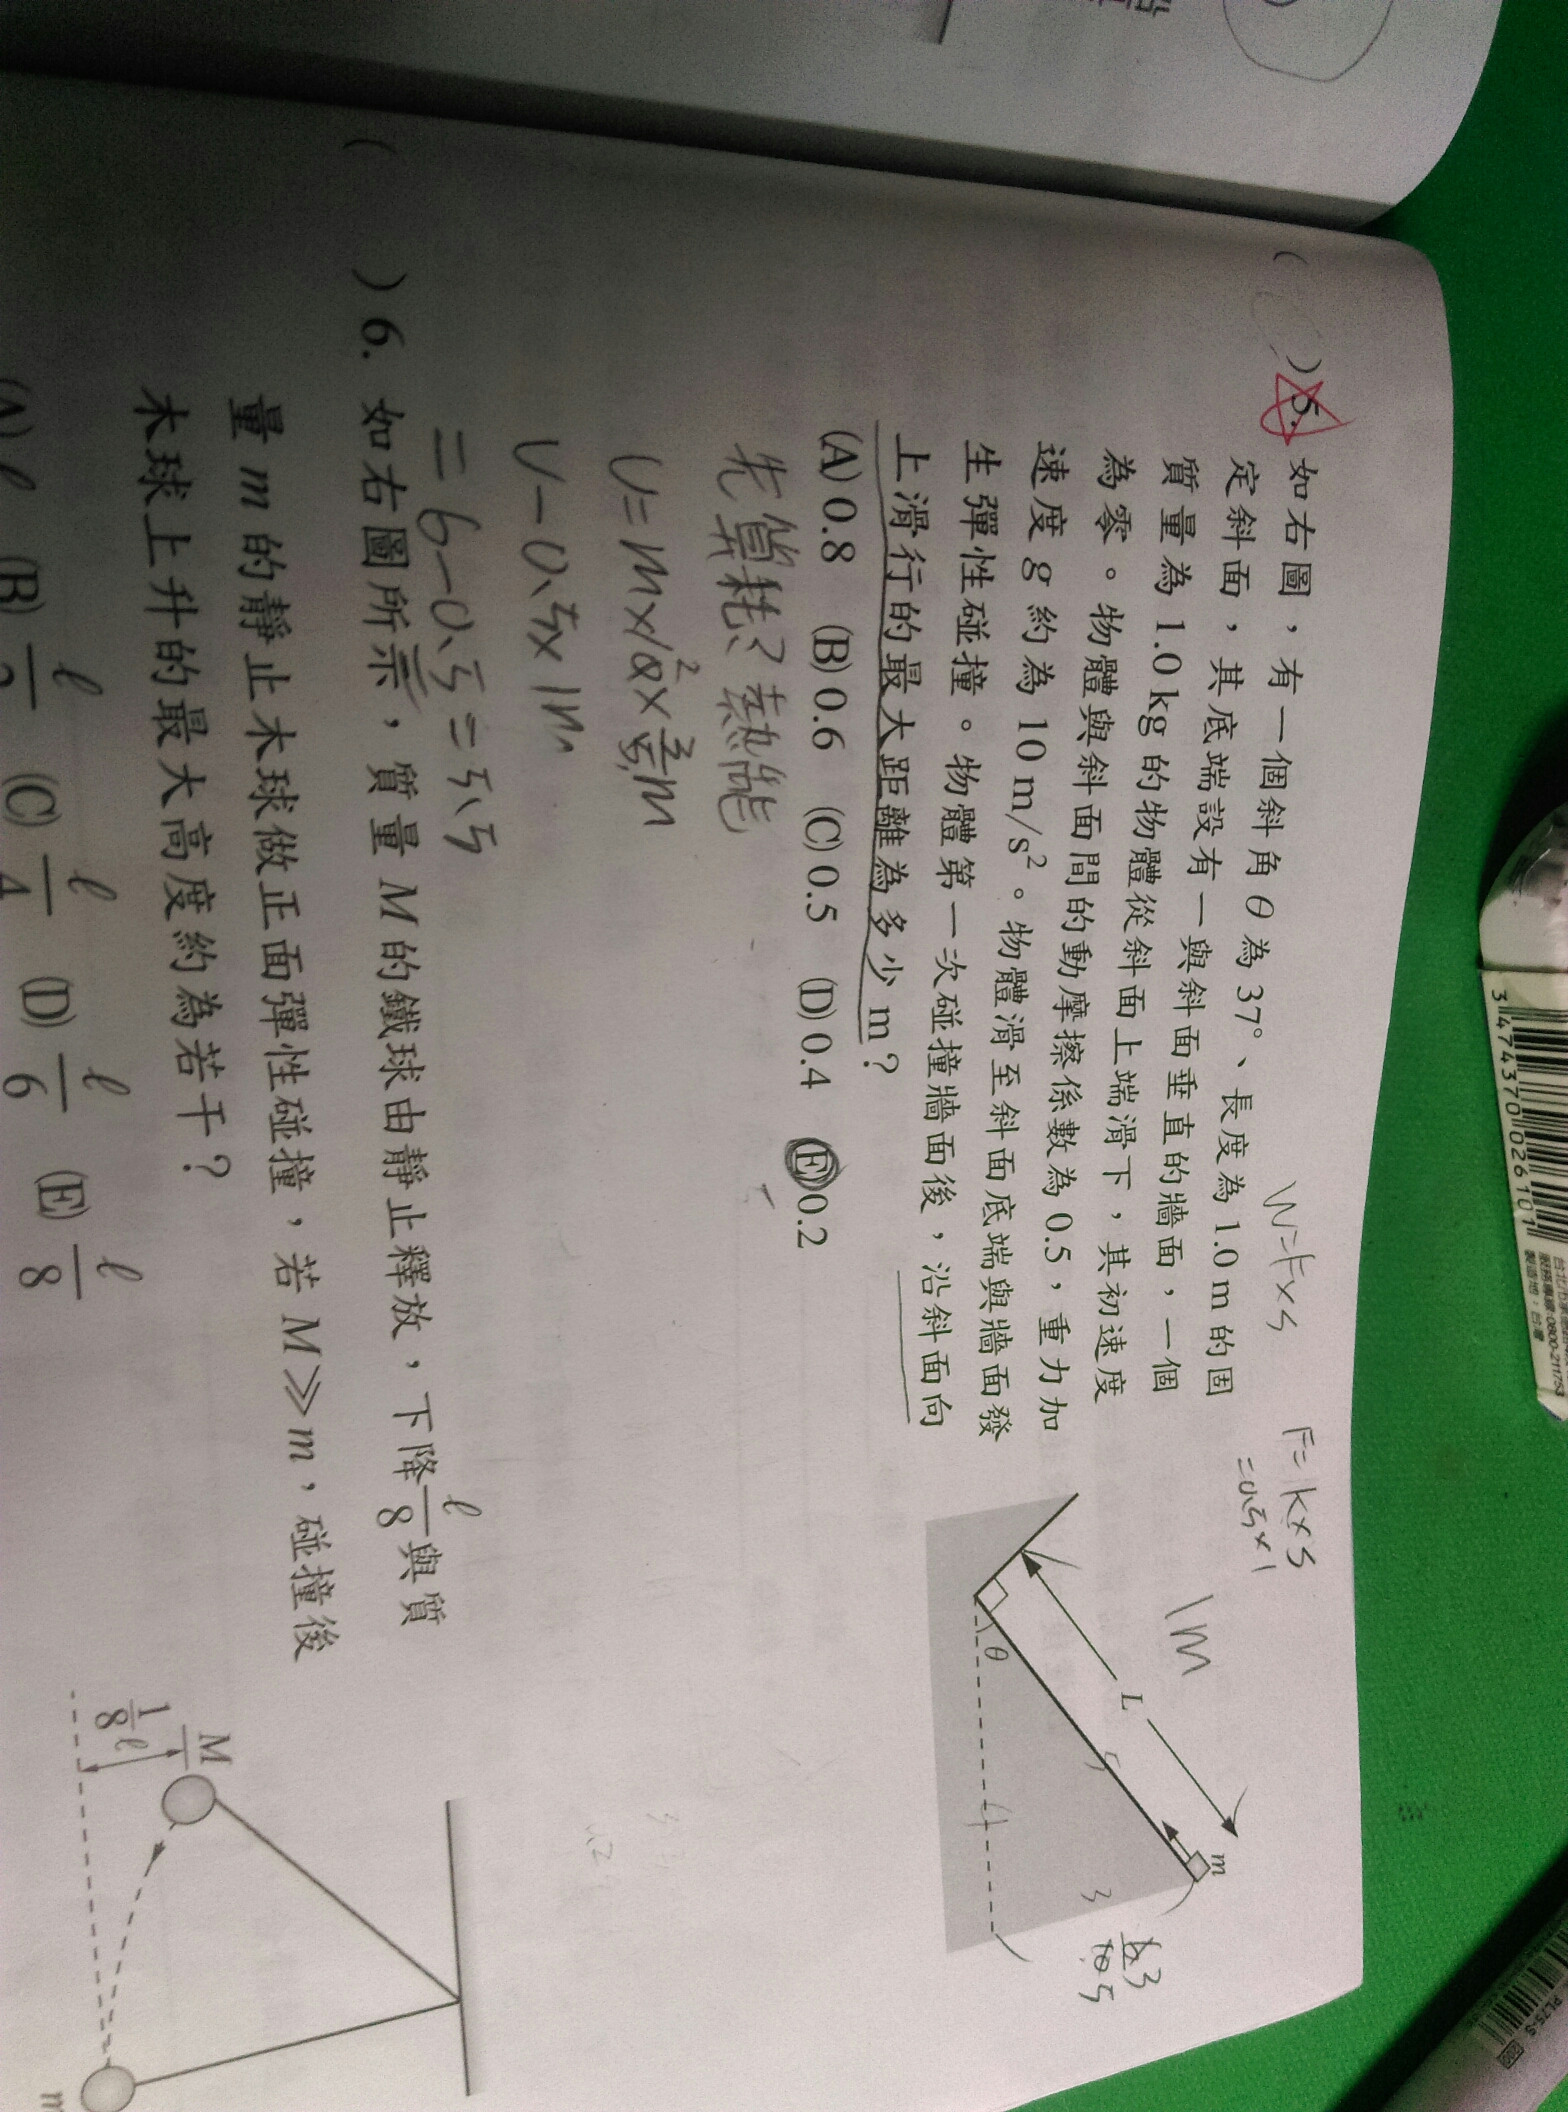 ( )5. 如右圖，有一個斜角 θ 為 37°、長度為 1.0 m 的固
定斜面，其底端設有一與斜面垂直的牆面，一個
質量為 1.0 kg 的物體從斜面上端滑下，其初速度
為零。物體與斜面間的動摩擦係數為 0.5，重力加
速度 g 約為 10 m/s²。物體滑至斜面底端與牆面發
生彈性碰撞。物體第一次碰撞牆面後，沿斜面向
上滑行的最大距離為多少 m？
(A) 0.8 (B) 0.6 (C) 0.5 (D) 0.4 (E) 0.2
先算耗?熱能
U=m×10×3/5m
U-0.5×1m
=6-0.5=5.5
W=F×S
F=k×S
=0.5×1
1m
L
m
θ
5
4
3
( )6. 如右圖所示，質量 M 的鐵球由靜止釋放，下降 ℓ/8 與質
量 m 的靜止木球做正面彈性碰撞，若 M≫m，碰撞後
木球上升的最大高度約為若干？
(A) ℓ (B) ℓ/2 (C) ℓ/4 (D) ℓ/6 (E) ℓ/8
M
1/8 ℓ
m
3 474370 026101
製造地：台灣
PL75-5